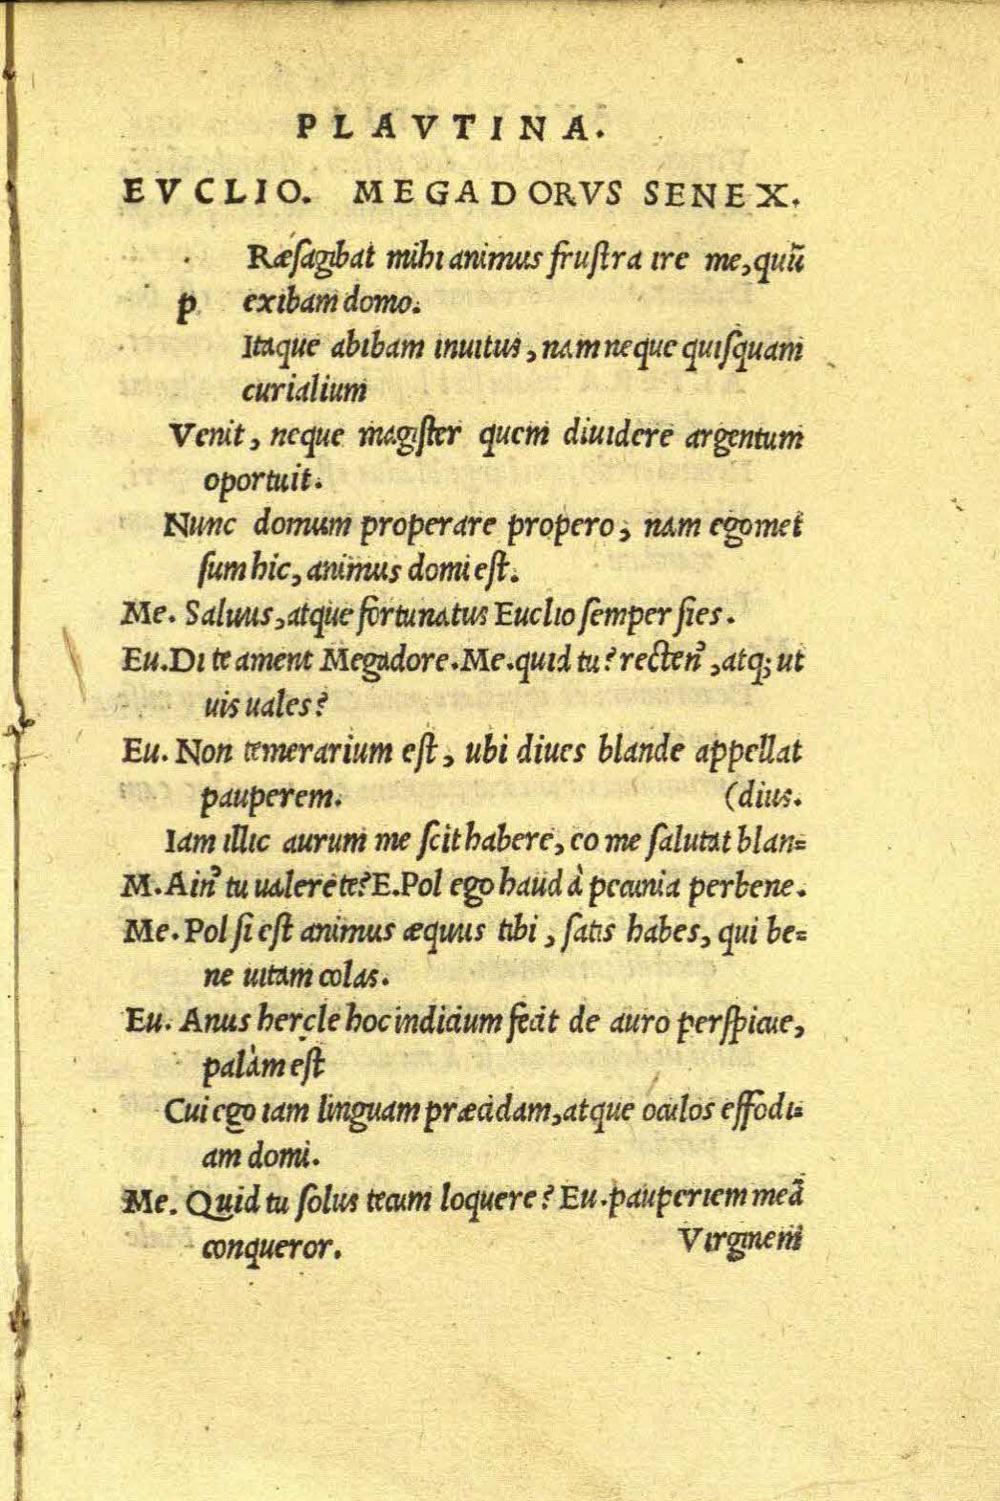 PLAVTINA.
EVCLIO. MEGADORVS SENEX.
Ræſagibat mihi animus fruſtra ire me, quū
p exibam domo.
Itaque abibam inuitus, nam neque quiſquam
curialium
Venit, neque magiſter quem diuidere argentum
oportuit.
Nunc domum properare propero, nam egomet
ſum hic, animus domi eſt.
Me. Saluus, atque fortunatus Euclio ſemper ſies.
Eu. Di te ament Megadore. Me. quid tu? recten', atq; ut
uis uales?
Eu. Non temerarium eſt, ubi diues blande appellat
pauperem. (dius.
Iam illic aurum me ſcit habere, eo me ſalutat blan=
M. Ain' tu ualere te? E. Pol ego haud à pecunia perbene.
Me. Pol ſi eſt animus æquus tibi, ſatis habes, qui be=
ne uitam colas.
Eu. Anus hercle hoc indicium fecit de auro perſpicue,
palàm eſt
Cui ego iam linguam præcidam, atque oculos effodi=
am domi.
Me. Quid tu ſolus tecum loquere? Eu. pauperiem meā
conqueror. Virginem